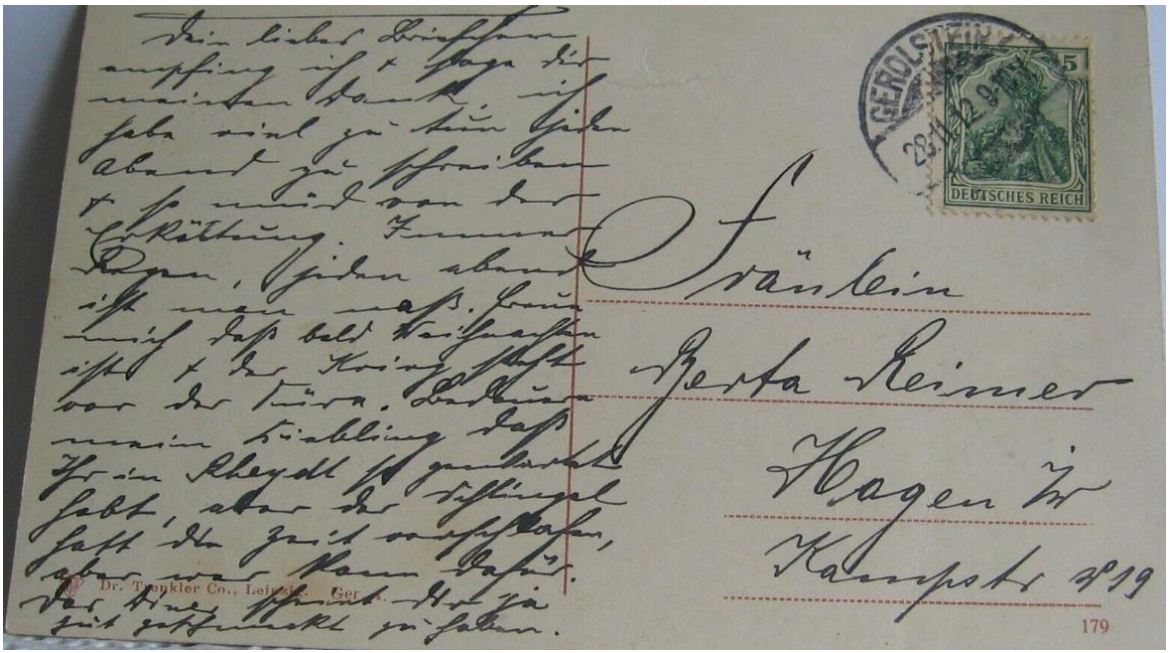 Dein liebes Briefchen
empfing ich & sage Dir
meinen Dank, ich
habe viel zu tun jeden
Abend zu schreiben
& so müd von der
Erkältung. Immer
Regen, jeden abend
ist man naß. Freue
mich daß bald Weihnachten
ist & der Krieg steht
vor der Türe. Bedauere
mein Liebling daß
Ihr in Rheydt so gewartet
habt, aber der Schlingel
hatt die Zeit verschlafen,
aber wer kann dafür.
Das Diner scheint Dir ja
gut geschmeckt zu haben.
Dr. Trenkler Co., Leipzig. Ger
GEROLSTEIN
28.11.12 9-10V
5
DEUTSCHES REICH
Fräulein
Berta Reimer
Hagen i/w
Kampstr № 19
179